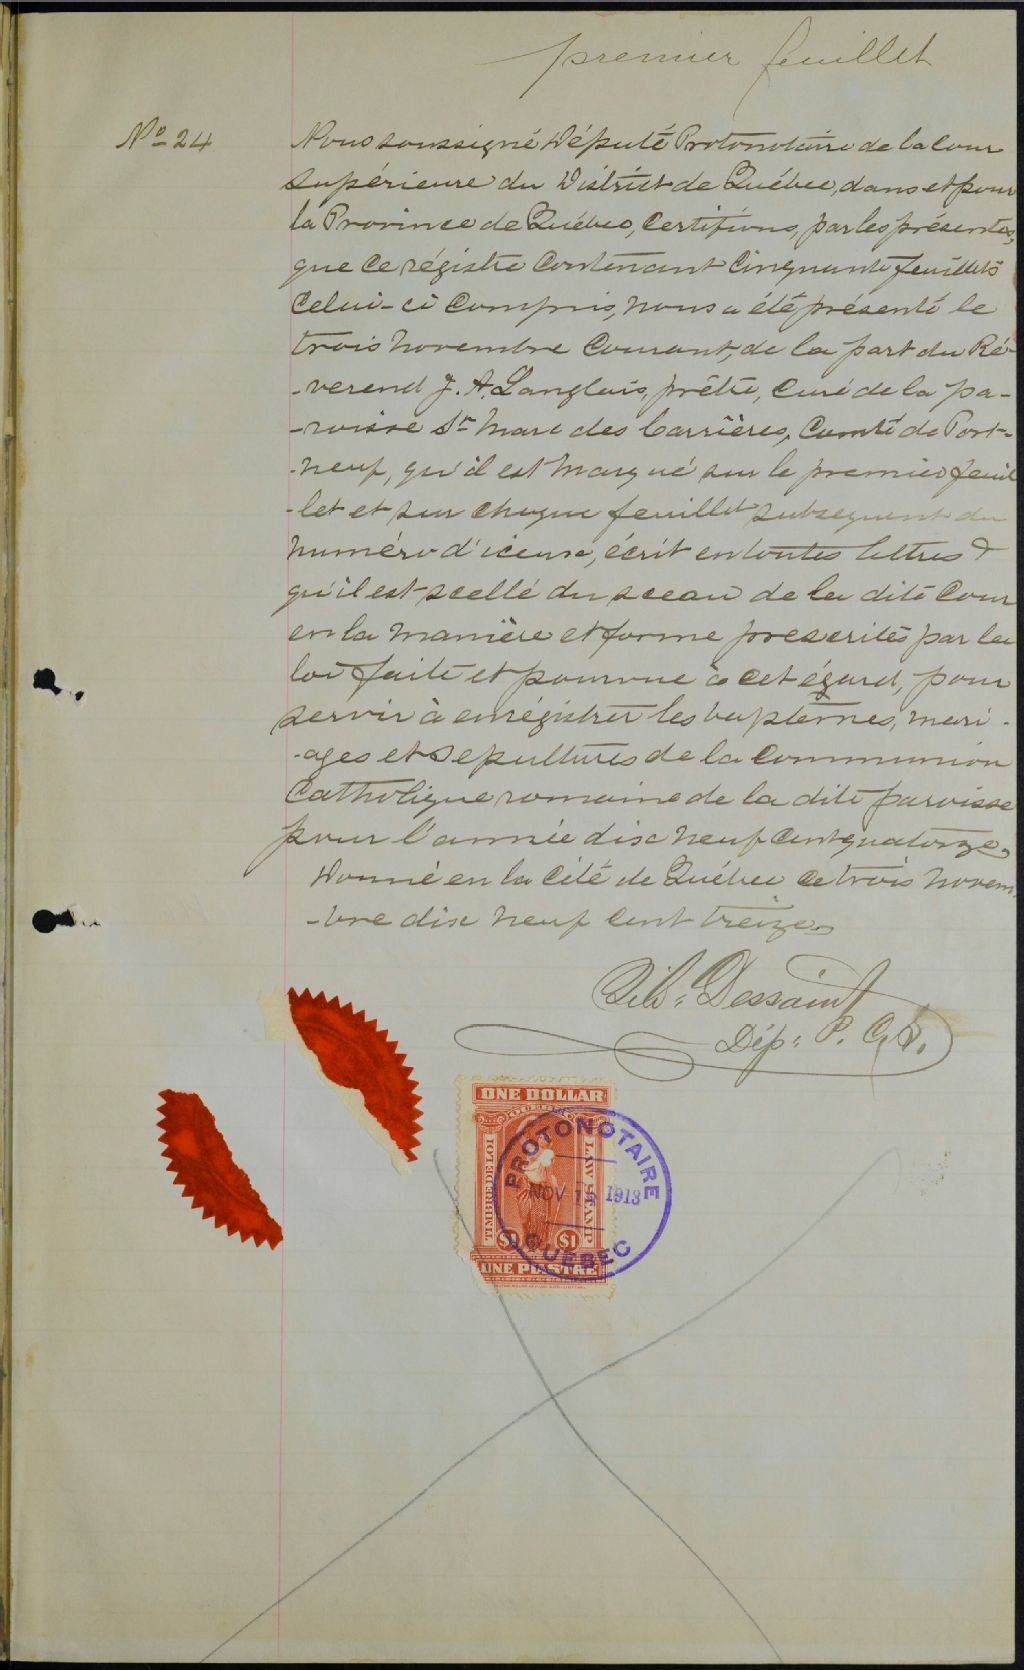 premier feuillet
No 24
Nous soussigné Député Protonotaire de la Cour
Supérieure du District de Québec, dans et pour
la Province de Québec, Certifions, par les présentes,
que ce régistre Contenant Cinquante feuillets
Celui-ci Compris, nous a été présenté le
trois novembre Courant, de la part du Ré-
-verend J. A. Langlais, prêtre, Curé de la pa-
-roisse St Marc des Carrières, Comté de Port-
-neuf, qu'il est marqué sur le premier feuil
-let et sur chaque feuillet subsequent du
numéro d'iceux, écrit en toutes lettres &
qu'il est scellé du sceau de la dite Cour
en la manière et forme prescrites par la
loi faite et pourvue à cet égard, pour
servir à enrégistrer les baptêmes, mari-
-ages et Sepultures de la Communion
Catholique romaine de la dite paroisse
pour l'année dix neuf Cent quatorze.
Donné en la Cité de Québec Ce trois novem
-bre dix neuf Cent treize.
Dessaint
Dép: P. C. S.
ONE DOLLAR
TIMBRE DE LOI
LAW STAMP
$1 $1
UNE PIASTRE
PROTONOTAIRE
NOV 1913
QUÉBEC